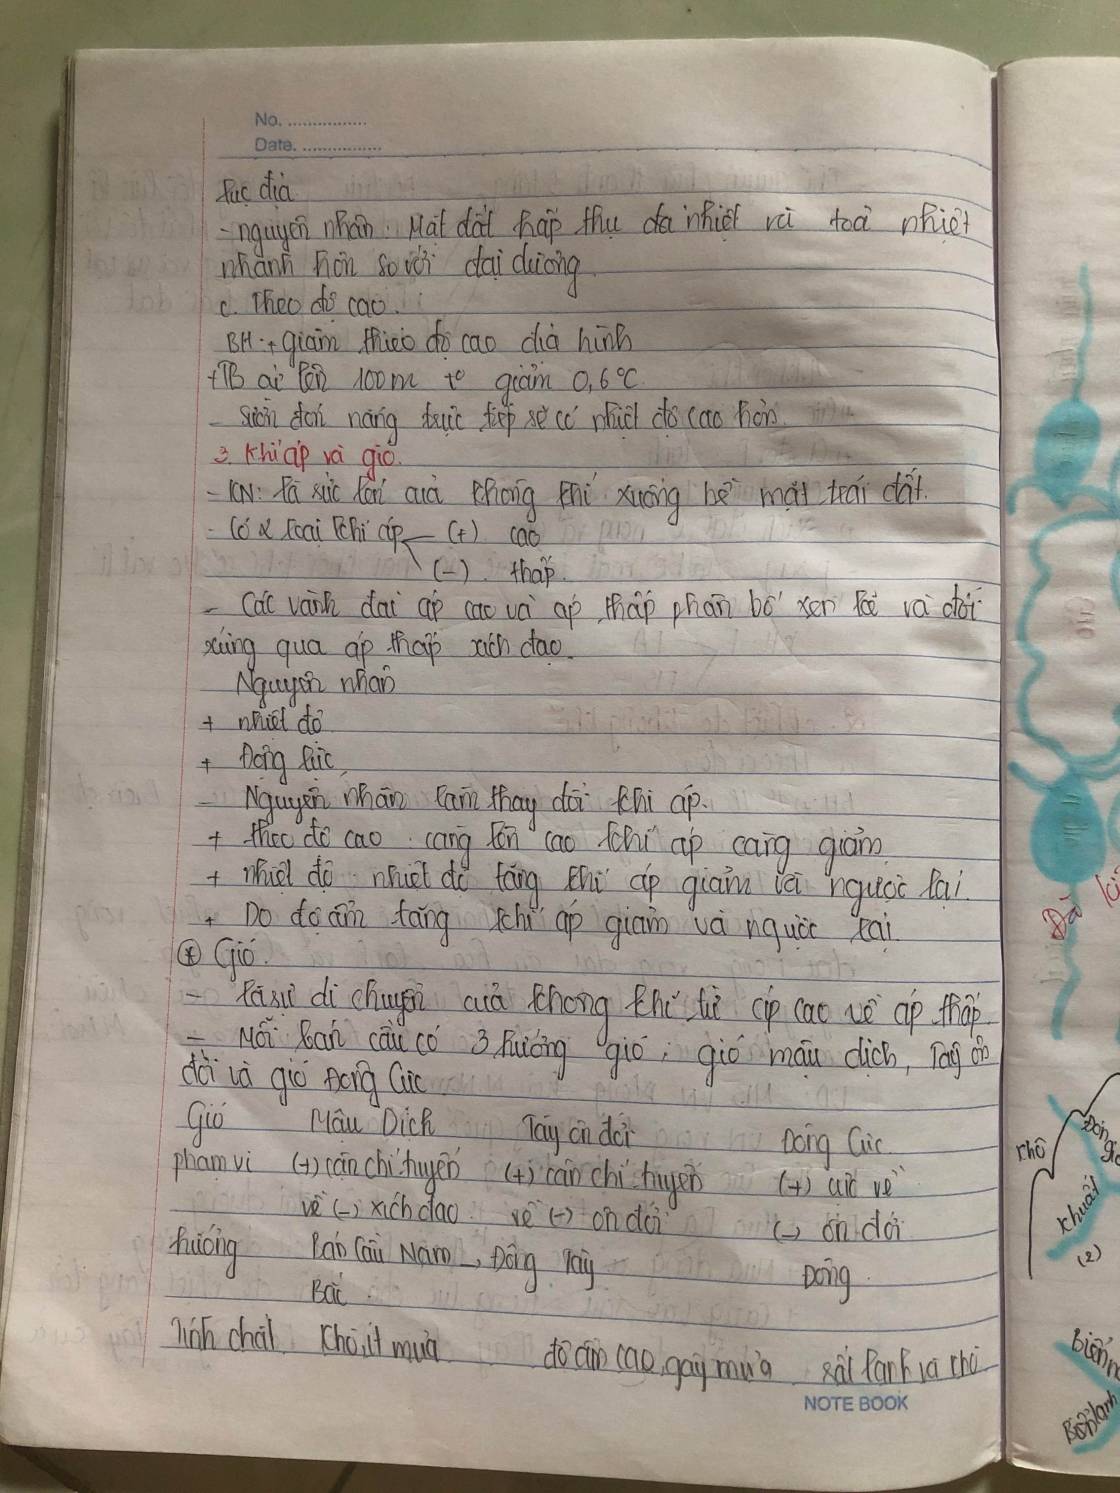 No. ................
Date. ................
lục địa
- nguyên nhân: Mặt đất hấp thụ đa nhiệt và toả nhiệt
nhanh hơn so với đại dương
c. Theo độ cao.
BH: + giảm theo độ cao địa hình
+ TB cứ lên 100m t° giảm 0,6°C
- Sườn đón nắng trực tiếp sẽ có nhiệt độ cao hơn.
3. Khí áp và gió.
- KN: là sức nén của không khí xuống bề mặt trái đất.
- Có 2 loại khí áp (+) cao
(-) thấp.
- Các vành đai áp cao và áp thấp phân bố xen kẽ và đối
xứng qua áp thấp xích đạo.
Nguyên nhân
+ nhiệt độ
+ Động lực
- Nguyên nhân làm thay đổi khí áp.
+ theo độ cao: càng lên cao khí áp càng giảm
+ nhiệt độ: nhiệt độ tăng khí áp giảm và ngược lại
+ Do độ ẩm tăng khí áp giảm và ngược lại
* Gió.
- là sự di chuyển của không khí từ áp cao về áp thấp
- Mỗi bán cầu có 3 hướng gió: gió mậu dịch, Tây ôn
đới và gió Đông Cực
Gió Mậu Dịch Tây ôn đới Đông Cực
phạm vi (+) cận chí tuyến (+) cận chí tuyến (+) cực về
về (-) xích đạo về (-) ôn đới (-) ôn đới
hướng Bán Cầu Nam → Đông Tây Đông
Bắc
Tính chất Khô, ít mưa độ ẩm cao, gây mưa rất lạnh và khô
NOTE BOOK
Khô
khuất
(2)